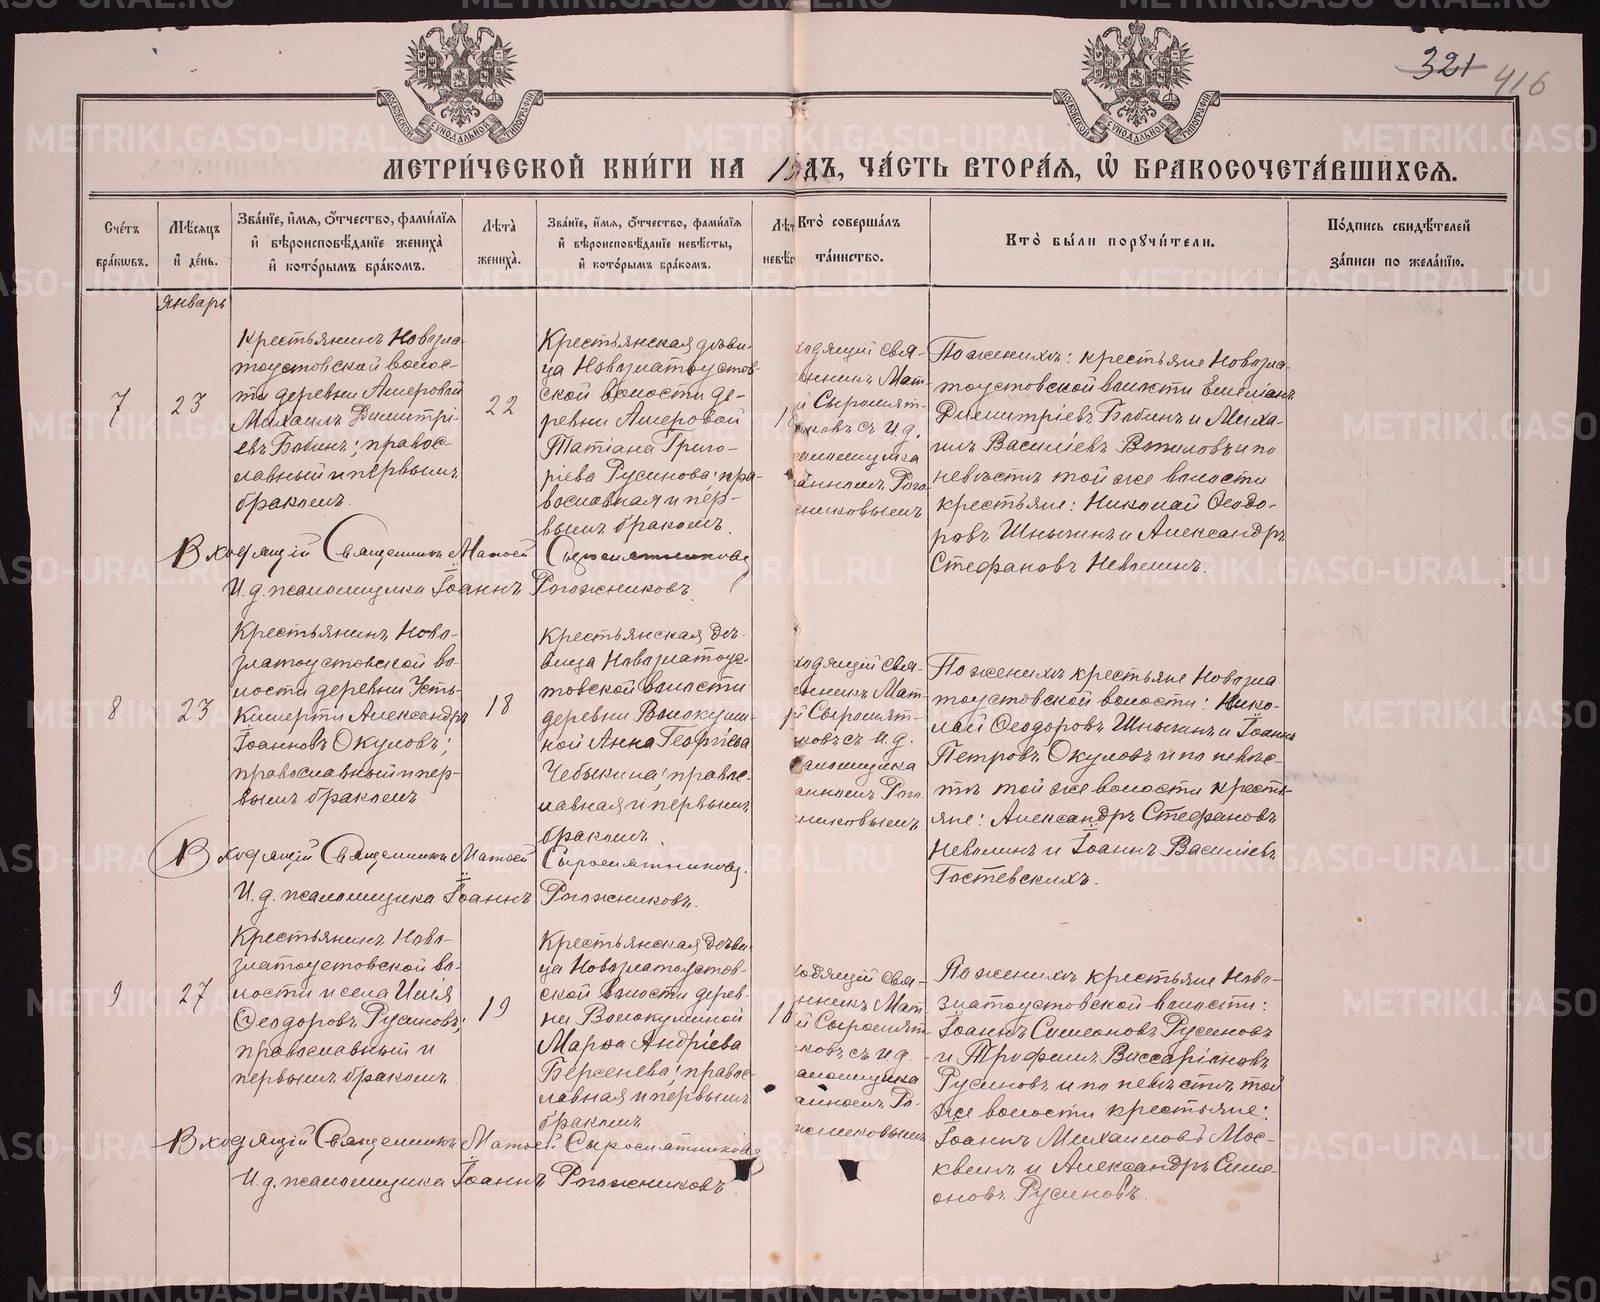 321 416
МОСКОВСКОЙ СѴНОДАЛЬНОЙ ТИПОГРАФІИ
МОСКОВСКОЙ СѴНОДАЛЬНОЙ ТИПОГРАФІИ
МЕТРИ́ЧЕСКОЙ КНИ́ГИ НА 1 ДЪ, ЧА́СТЬ ВТОРА́Я, Ѡ БРАКОСОЧЕТА́ВШИХСЯ.
Сче́тъ
бра́кѡвъ.
Мѣ́сяцъ
и҆ де́нь.
Зва́нїе, и҆́мя, ѻ҆́тчество, фами́лїя
и҆ вѣроисповѣ́данїе жениха̀
и҆ кото́рымъ бра́комъ.
Лѣта̀
жениха̀.
Зва́нїе, и҆́мя, ѻ҆́тчество, фами́лїя
и҆ вѣроисповѣ́данїе невѣ́сты,
и҆ кото́рымъ бра́комъ.
Лѣт
невѣс
Кто̀ соверша́лъ
та́инство.
Кто̀ бы́ли порꙋчи́тели.
По́дпись свидѣ́телей
за́писи по жела́нїю.
Январь
7
23
Крестьянинъ Новозла-
тоустовской волос-
ти деревни Амеровой
Михаилъ Димитрі-
евъ Бабинъ; правос
лавный и первымъ
бракомъ
22
Крестьянская дѣви-
ца Новозлатоустов-
ской волости де-
ревни Амеровой
Татіана Григо-
ріева Русинова; пра-
вославная и пер-
вымъ бракомъ.
1
ходящій Свя-
енникъ Мат-
й Сыромят-
ковъ съ И. д.
аломщика
анномъ Рого
никовымъ
По женихѣ: крестьяне Новозла-
тоустовской волости Емеліанъ
Димитріевъ Бабинъ и Миха-
илъ Василіевъ Вотиловъ и по
невѣстѣ той же волости
крестьяне: Николай Ѳеодо-
ровъ Шныкинъ и Александръ
Стефановъ Неволинъ.
Входящій Священникъ Матѳей Сыромятниковъ
И. д. псаломщика Іоаннъ Рогожниковъ
8
23
Крестьянинъ Ново-
златоустовской во-
лости деревни Усть-
Кишерти Александръ
Іоанновъ Окуловъ;
православный и пер-
вымъ бракомъ.
18
Крестьянская дѣ-
вица Новозлатоус-
товской волости
деревни Волокуши-
ной Анна Георгіева
Чебыкина; правос-
лавная и первымъ
бракомъ.
1
ходящій Свя-
енникъ Мат-
й Сыромят-
ковъ съ И. д.
аломщика
анномъ Рого
никовымъ
По женихѣ крестьяне Новозла
тоустовской волости: Нико-
лай Ѳеодоровъ Шныкинъ и Іоаннъ
Петровъ Окуловъ и по невѣс-
тѣ той же волости кресть-
яне: Александръ Стефановъ
Неволинъ и Іоаннъ Василіевъ
Гостевскихъ.
Входящій Священникъ Матѳей Сыромятниковъ.
И. д. псаломщика Іоаннъ Рогожниковъ.
9
27
Крестьянинъ Ново-
златоустовской во-
лости и села Илія
Ѳеодоровъ Русиновъ;
православный и
первымъ бракомъ
19
Крестьянская дѣви-
ца Новозлатоустов-
ской волости дерев-
ни Волокушиной
Марѳа Андріева
Берсенева; правос-
лавная и первымъ
бракомъ.
1
ходящій Свя-
нникъ Мат
й Сыромят-
ковъ съ И. д.
аломщика
анномъ Ро-
жниковымъ
По женихѣ крестьяне Ново-
златоустовской волости:
Іоаннъ Симеоновъ Русиновъ
и Трофимъ Виссаріоновъ
Русиновъ и по невѣстѣ той
же волости крестьяне:
Іоаннъ Михаиловъ Мос-
квинъ и Александръ Симе-
оновъ Русиновъ.
Входящій Священникъ Матѳей Сыромятниковъ
И. д. псаломщика Іоаннъ Рогожниковъ.
METRIKI.GASO-URAL.RU